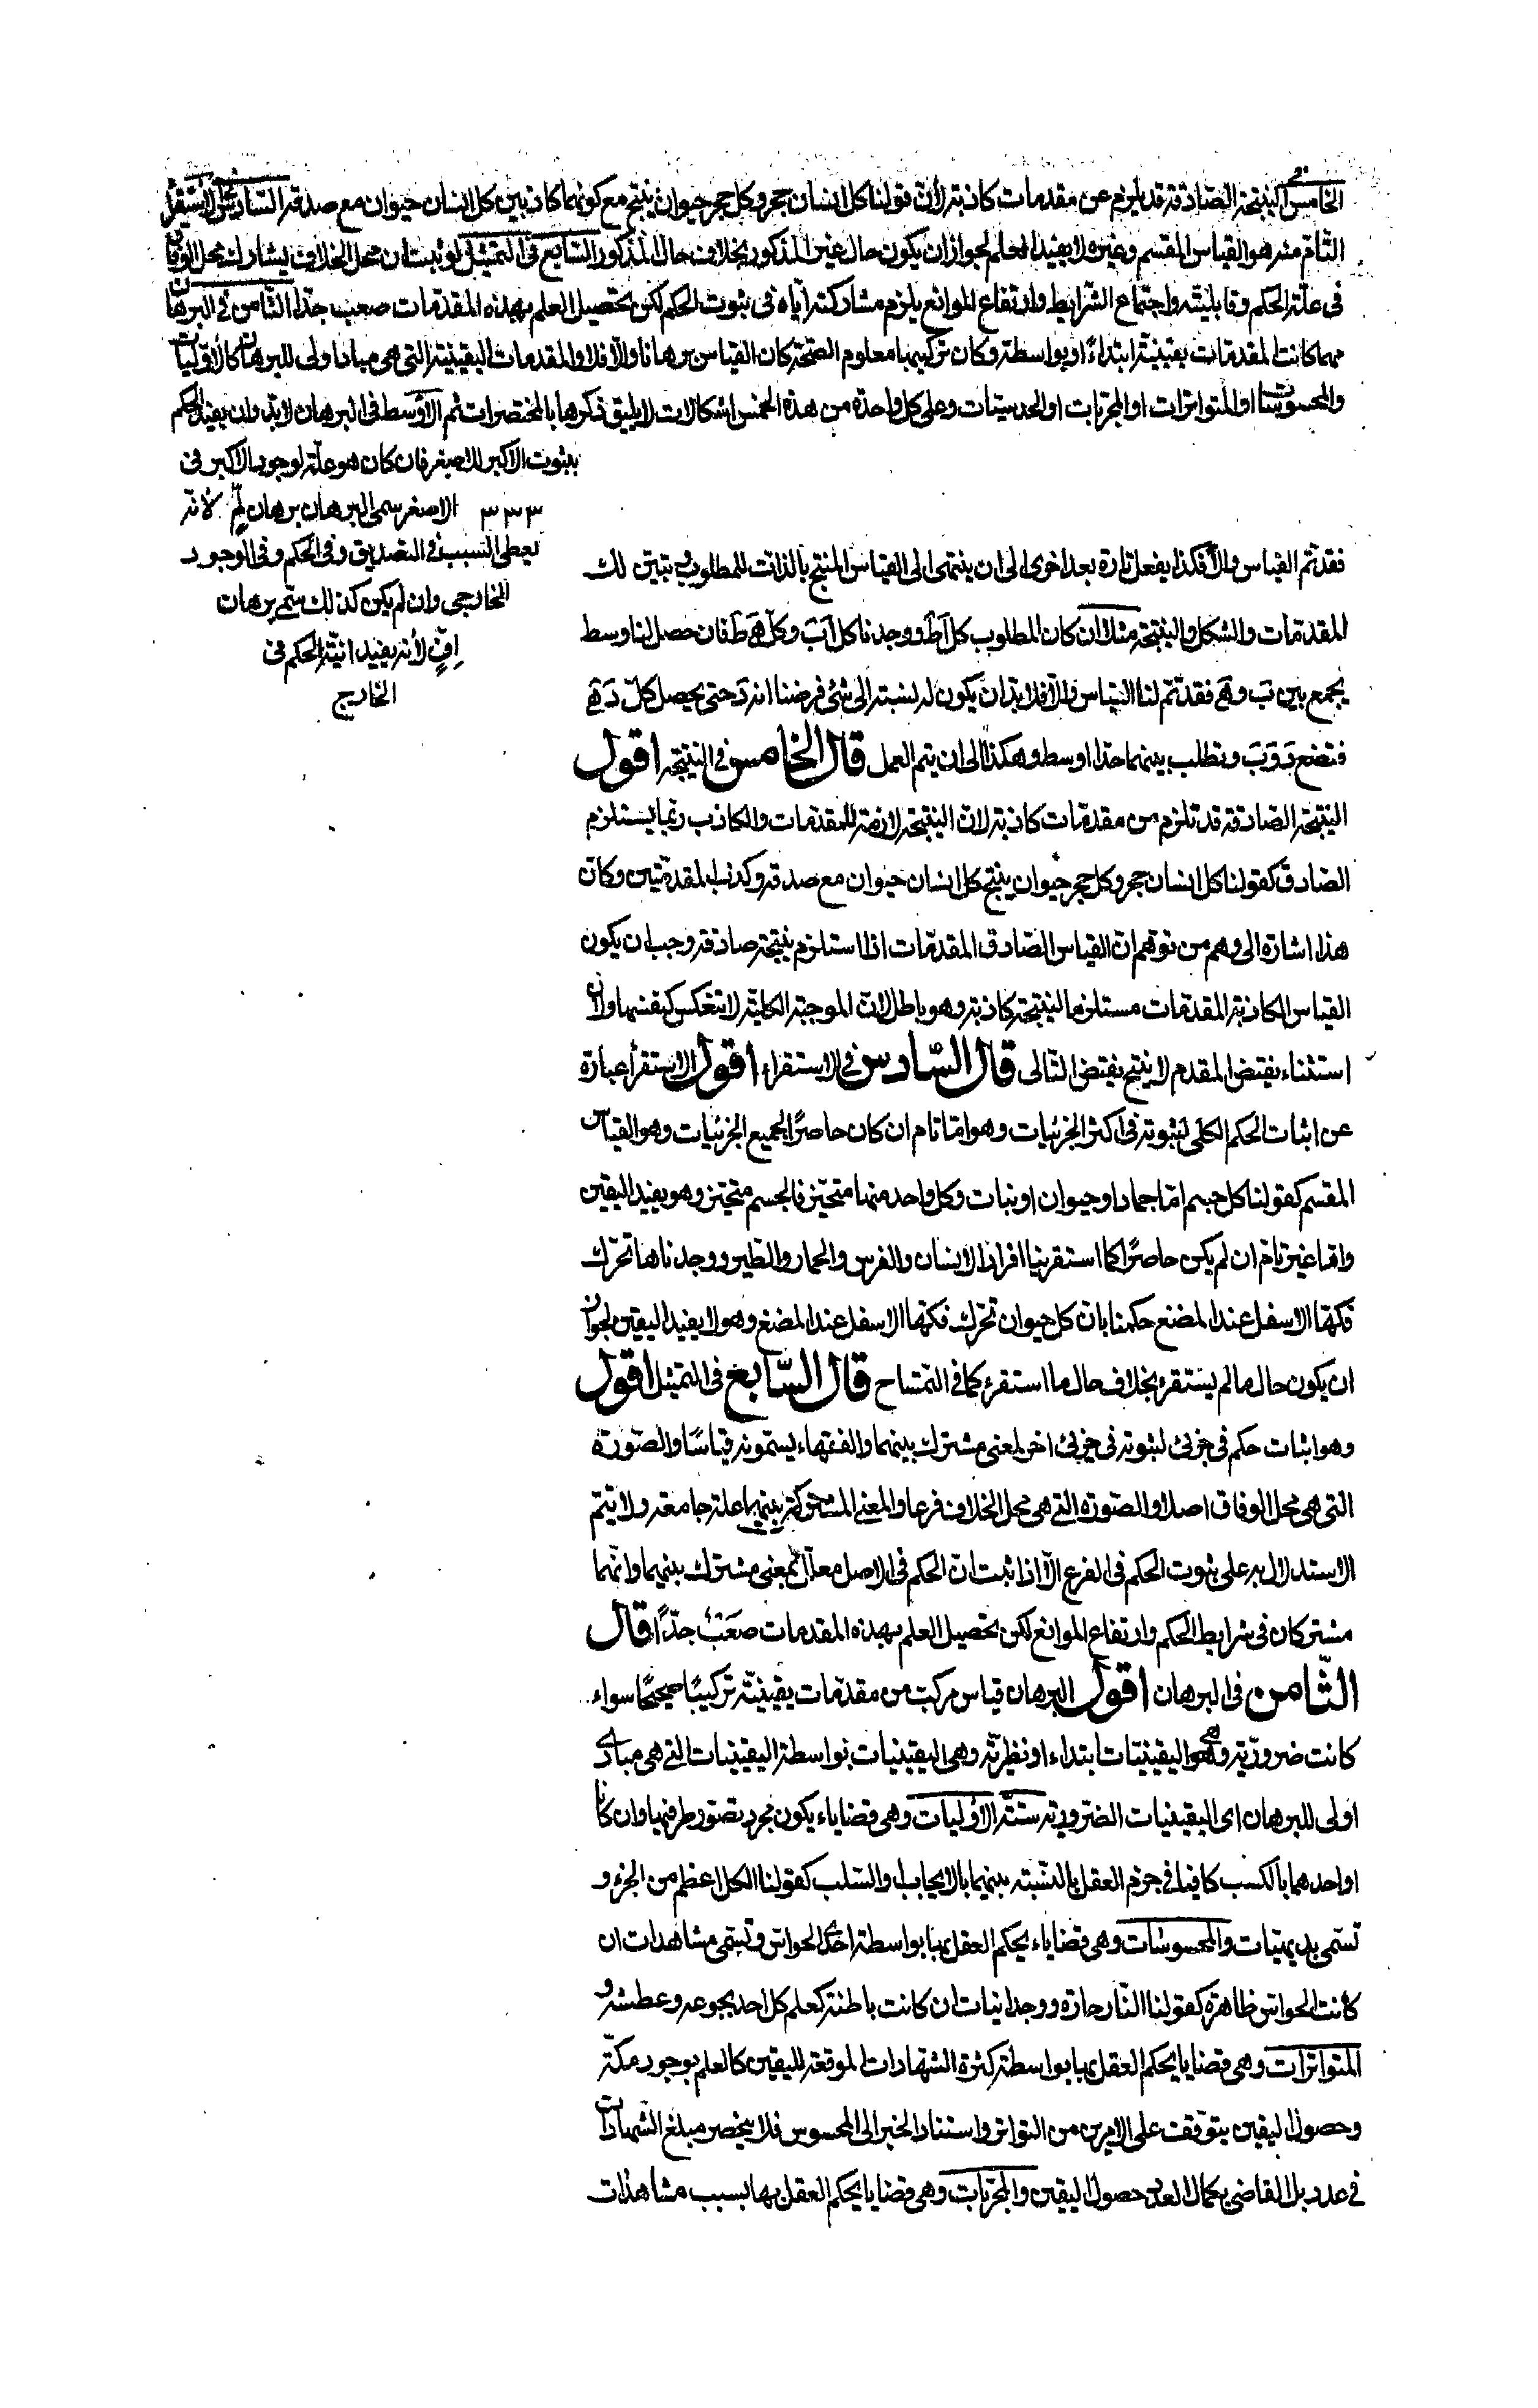 الخامس النتيجة الصادقة قد يلزم عن مقدمات كاذبة لأن قولنا كل انسان حجر وكل حجر حيوان ينتج مع كونهما كاذبين كل انسان حيوان مع صدقه السادس الاستقراء
التام منه هو القياس المقسم وغيره لا يفيد العلم لجواز ان يكون حال غير المذكور بخلاف حال المذكور السابع في التمثيل لو ثبت ان محل الخلاف يشارك محل الوفاق
في علة الحكم وقابليته واجتماع الشرايط وارتفاع الموانع يلزم مشاركته اياه في ثبوت الحكم لكن تحصيل العلم بهذه المقدمات صعب جدا الثامن في البرهان
مهما كانت المقدمات يقينية ابتداء او بواسطة وكان تركيبها معلوم الصحة كان القياس برهانا والا فلا والمقدمات اليقينية التي هي مباد اولى للبرهان كالاوليات
والمحسوسات او المتواترات او المجربات او الحدسيات وعلى كل واحدة من هذه الخمس اشكالات لا يليق ذكرها بالمختصرات ثم الاوسط في البرهان لابد وان يفيد الحكم
بثبوت الاكبر للاصغر فان كان هو علة لوجود الاكبر في
الاصغر سمى البرهان برهان لم لانه
يعطى السبب في التصديق وفي الحكم وفي الوجود
الخارجي وان لم يكن كذلك سمى برهان
ان لأنه يفيد انية الحكم في
الخارج
٣٣٣
فقد تم القياس والا فكذا يفعل تارة بعد اخرى الى ان ينتهى الى القياس المنتج بالذات للمطلوب وتبين لك
المقدمات والشكل والنتيجة مثلا ان كان المطلوب كل اط ووجدنا كل اب وكل هط فان حصل لنا وسط
يجمع بين ب و ه فقد تم لنا القياس والا فلا بد ان يكون له نسبة الى شئ فرضنا انه د حتى يحصل كل د ه
فنضع د و ب ونطلب بينهما حدا اوسط وهكذا الى ان يتم العمل قال الخامس في النتيجة اقول
النتيجة الصادقة قد تلزم من مقدمات كاذبة لان النتيجة لازمة للمقدمات والكاذب ربما يستلزم
الصادق كقولنا كل انسان حجر وكل حجر حيوان ينتج كل انسان حيوان مع صدقه وكذب المقدمتين وكان
هذا اشارة الى وهم من توهم ان القياس الصادق المقدمات اذا استلزم نتيجة صادقة وجب ان يكون
القياس الكاذبة المقدمات مستلزما لنتيجة كاذبة وهو باطل لان الموجبة الكلية لا تنعكس كنفسها ولان
استثناء نقيض المقدم لا ينتج نقيض التالى قال السادس في الاستقراء اقول الاستقراء عبارة
عن اثبات الحكم الكلى لثبوته في اكثر الجزئيات وهو اما تام ان كان حاصرا لجميع الجزئيات وهو القياس
المقسم كقولنا كل جسم اما جماد او حيوان او نبات وكل واحد منها متحيز فالجسم متحيز وهو يفيد اليقين
واما غير تام ان لم يكن حاصرا كما استقرينا افراد الانسان والفرس والحمار والطير ووجدناها تحرك
فكها الاسفل عند المضغ حكمنا بان كل حيوان تحرك فكها الاسفل عند المضغ وهو لا يفيد اليقين لجواز
ان يكون حال ما لم يستقرء بخلاف حال ما استقرء كما في التمساح قال السابع في التمثيل اقول
وهو اثبات حكم في جزئ لثبوته في جزئ اخر لمعنى مشترك بينهما والفقهاء يسمونه قياسا والصورة
التى هى محل الوفاق اصلا والصورة التى هى محل الخلاف فرعا والمعنى المشترك بينهما علة جامعة ولا يتم
الاستدلال به على ثبوت الحكم في الفرع الا اذا ثبت ان الحكم في الاصل معلل بمعنى مشترك بينهما وانهما
مشتركان في شرايط الحكم وارتفاع الموانع لكن تحصيل العلم بهذه المقدمات صعب جدا قال
الثامن في البرهان اقول البرهان قياس مركب من مقدمات يقينية تركيبا صحيحا سواء
كانت ضرورية وهى اليقينيات ابتداء او نظرية وهى اليقينيات بواسطة اليقينيات التى هى مبادى
اولى للبرهان اى اليقينيات الضرورية ستة الاوليات وهى قضاياء يكون مجرد تصور طرفيها وان كانا
او احدهما بالكسب كافيا في جزم العقل بالنسبة بينهما بالايجاب او السلب كقولنا الكل اعظم من الجزء و
تسمى بديهيات والمحسوسات وهى قضاياء يحكم العقل بها بواسطة احدى الحواس وتسمى مشاهدات ان
كانت الحواس ظاهرة كقولنا النار حارة ووجدانيات ان كانت باطنة كعلم كل احد بجوعه وعطشه و
المتواترات وهى قضايا يحكم العقل بها بواسطة كثرة الشهادات الموقعة لليقين كالعلم بوجود مكة
وحصول اليقين يتوقف على الامرين من التواتر واستناد الخبر الى المحسوس فلا ينحصر مبلغ الشهادات
في عدد بل القاضى بكمال العدد حصول اليقين والمجربات وهى قضايا يحكم العقل بها بسبب مشاهدات